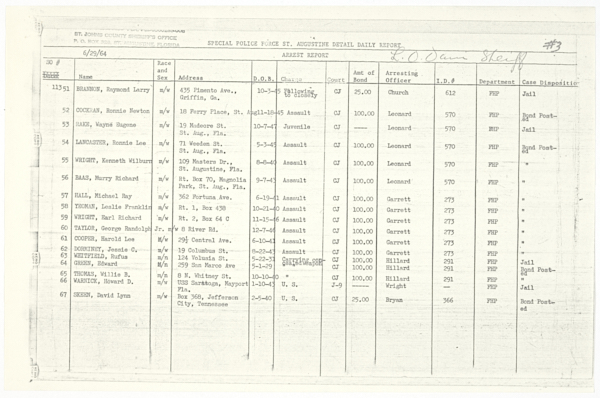 ST. JOHNS COUNTY SHERIFF'S OFFICE
SPECIAL POLICE FORCE ST. AUGUSTINE DETAIL DAILY REPORT
#3
6/29/64 ARREST REPORT L. O. Davis Sheriff
Name Race and Sex Address D.O.B. Charge Court Amt of Bond Arresting Officer I.D.# Department Case Disposition
11351 BRANNON, Raymond Larry m/w 435 Pimento Ave., Griffin, Ga. 10-3-45 Following to closely CJ 25.00 Church 612 FHP Jail
52 Ronnie Newton m/w 18 Ferry Place, St. Aug 11-18-45 Assault CJ 100.00 Leonard 570 FHP Bond Posted
53 Wayne Eugene m/w 19 St. St. Aug., Fla. 10-7-47 Juvenile CJ ---- Leonard 570 Jail
54 LANCASTER, Ronnie Lee m/w 71 St. St. Aug., Fla. 5-3-45 Assault CJ 100.00 Leonard 570 FHP Bond Posted
55 WRIGHT, Kenneth Wilburn m/w 109 Masters Dr., St. Augustine, Fla. 8-8-40 Assault CJ 100.00 Leonard 570 FHP "
56 HAAS, Harry Richard m/w Rt. Box 70, Magnolia Park, St. Aug., Fla. 9-7-43 Assault CJ 100.00 Leonard 570 FHP "
57 HALL, Michael Ray m/w 362 Fortuna Ave. 6-19-41 Assault CJ 100.00 Garrett 273 FHP "
58 Leslie Franklin m/w Rt. 1, Box 43B 10-21-40 Assault CJ 100.00 Garrett 273 FHP "
59 WRIGHT, Earl Richard m/w Rt. 2, Box 64 C 11-15-46 Assault CJ 100.00 Garrett 273 FHP "
60 TAYLOR, George Randolph Jr. m/w 8 River Rd. 12-7-46 Assault CJ 100.00 Garrett 273 FHP "
61 COOPER, Harold Lee 29½ Central Ave. 6-10-41 Assault CJ 100.00 Garrett 273 FHP "
62 Jessie C. m/w 19 Columbus St. 8-22-43 Assault CJ 100.00 Garrett 273 FHP "
63 WHITFIELD, Rufus 124 St. Carrying CJ 100.00 Hillard 291 FHP Jail
64 GREEN, Edward 299 San Marco Ave 5-1-29 CJ 100.00 Hillard 291 FHP Bond Posted
65 THOMAS, Willie B. 8 N. Whitney St. 10-10-40 " CJ 100.00 Hillard 291 FHP "
66 WARNICK, Howard D. m/w USS Saratoga, Mayport Fla. 1-10-43 U. S. J-9 ----- Wright -- FHP Jail
67 GREEN, David Lynn m/w Box 368, Jefferson City, Tennessee 2-5-40 U. S. CJ 25.00 Bryan 366 FHP Bond Posted